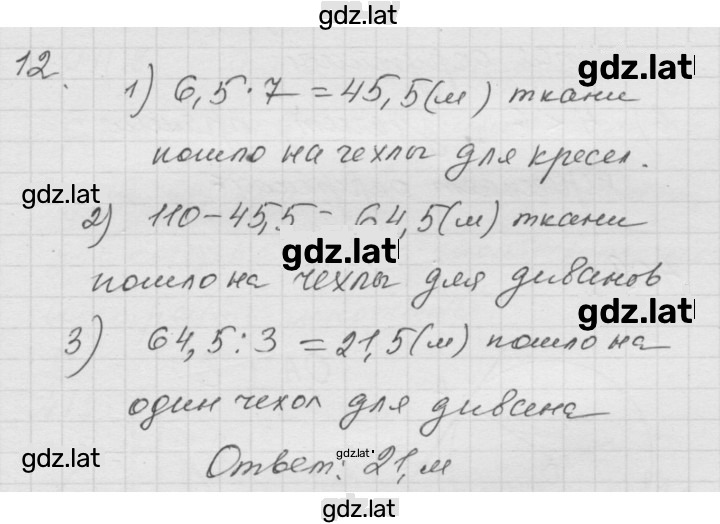 gdz.lat
12.
gdz.lat
1) 6,5 · 7 = 45,5 (м) ткани
пошло на чехлы для кресел.
gdz.lat
2) 110 - 45,5 = 64,5 (м) ткани
gdz.lat
пошло на чехлы для диванов
gdz.lat
3) 64,5 : 3 = 21,5 (м) пошло на
один чехол для дивана
gdz.lat
gdz.lat
Ответ: 21, м
gdz.lat